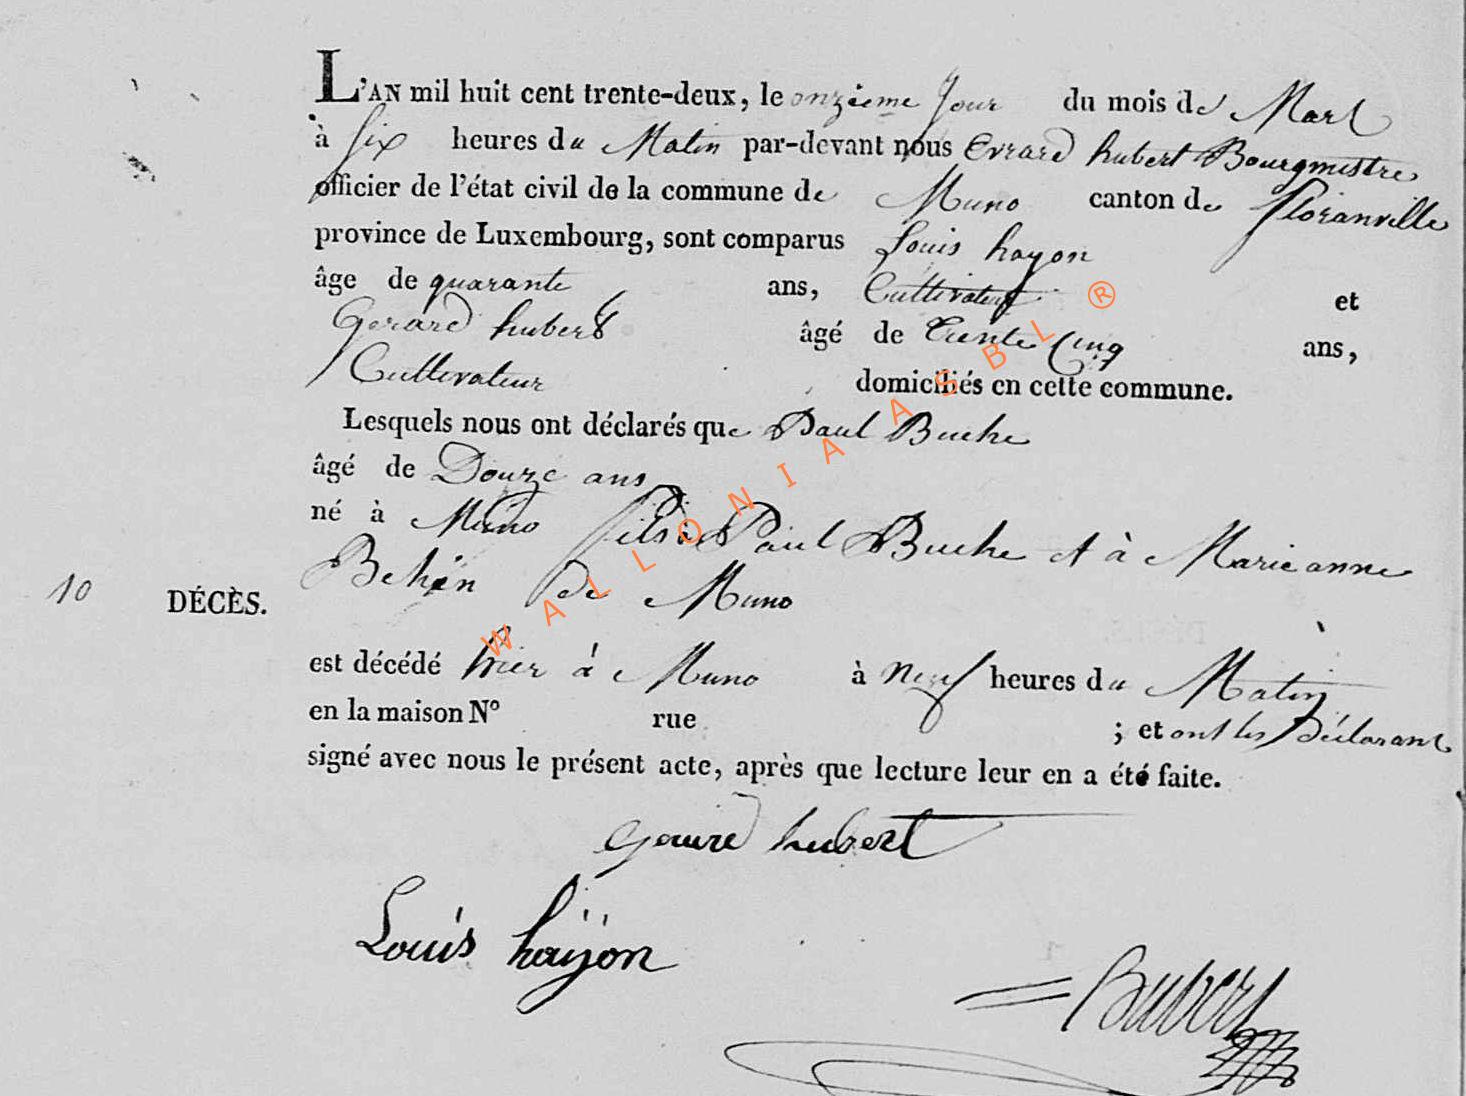 L'AN mil huit cent trente-deux, le onzième Jour du mois de Mars
à six heures du Matin par-devant nous Evrard hubert Bourgmestre
officier de l'état civil de la commune de Muno canton de floranville
province de Luxembourg, sont comparus Louis hayon
âge de quarante ans, Cultivateur et
Gerard hubert âgé de Trente Cinq ans,
Cultivateur domiciliés en cette commune.
Lesquels nous ont déclarés que Paul Buche
âgé de Douze ans
né à Muno fils de Paul Buche et à Marie anne
Behin de Muno
10 DÉCÈS.
est décédé hier à Muno à neuf heures du Matin
en la maison N° rue ; et ont les Déclarant
signé avec nous le présent acte, après que lecture leur en a été faite.
gerard hubert
Louis haÿon
WALLONIA ASBL ®